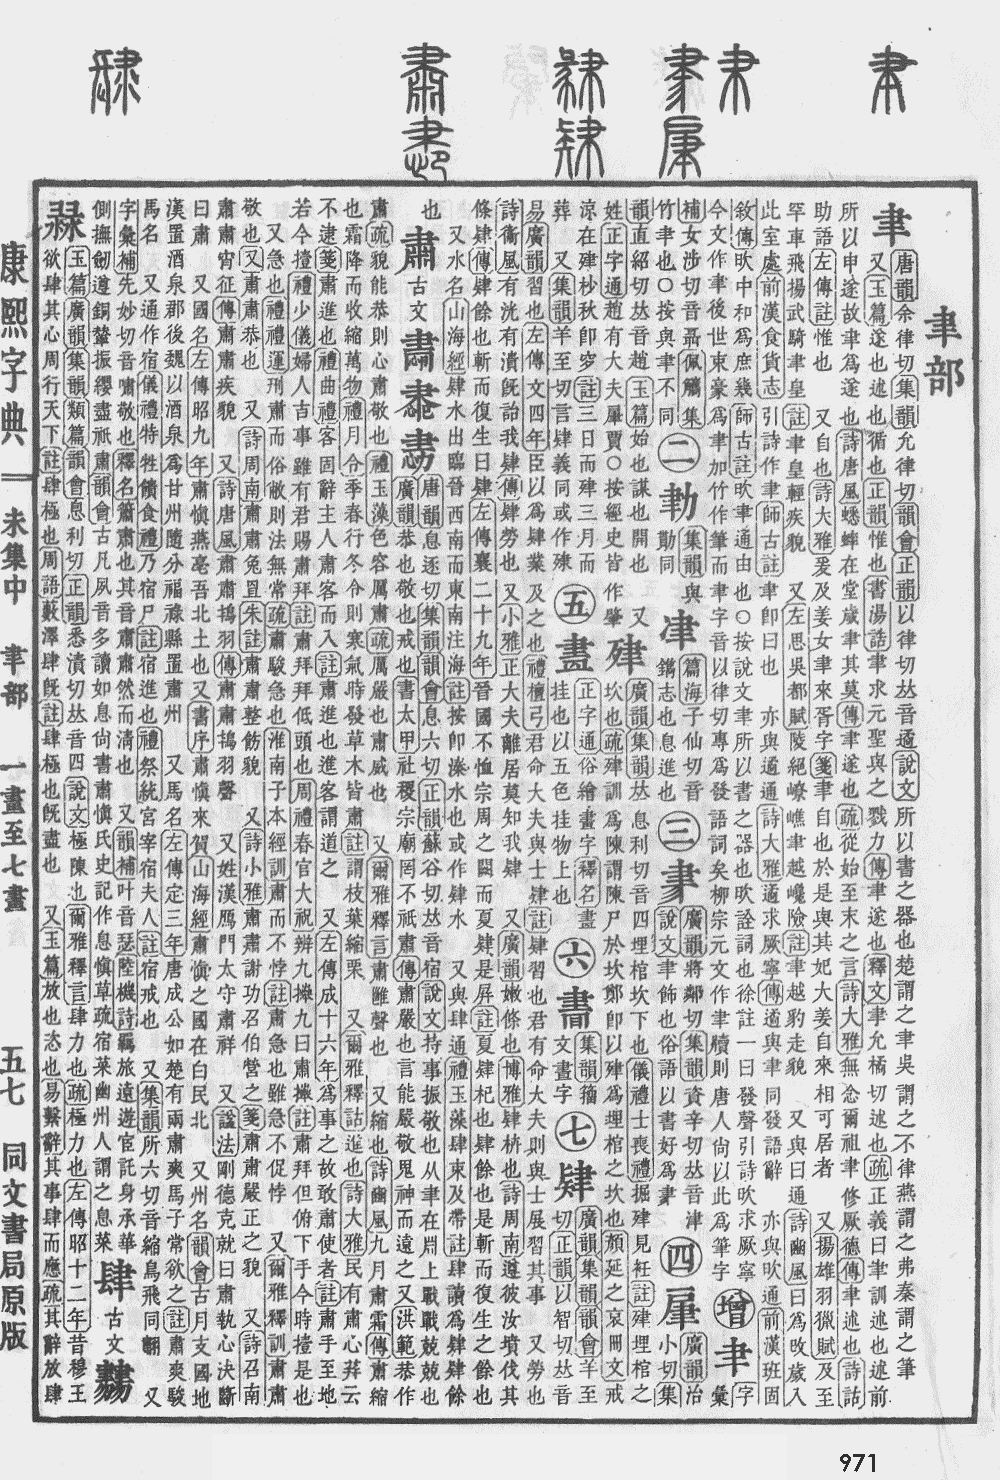 聿部
聿
唐韻余律切集韻允律切韻會正韻以律切𠀤音遹說文所以書之器也楚謂之聿吳謂之不律燕謂之弗秦謂之筆
又玉篇遂也述也循也正韻惟也書湯誥聿求元聖與之戮力傳聿遂也釋文聿允橘切述也疏正義曰聿訓述也述前
所以申遂故聿爲遂也詩唐風蟋蟀在堂歲聿其莫傳聿遂也疏從始至末之言詩大雅無念爾祖聿修厥德傳聿述也詩詁
助語左傳註惟也 又自也詩大雅爰及姜女聿來胥宇箋聿自也於是與其妃大姜自來相可居者 又揚雄羽獵賦及至
罕車飛揚武騎聿皇註聿皇輕疾貌 又左思吳都賦陵絕嶛嶕聿越巉險註聿越豹走貌 又與曰通詩豳風曰爲改歲入
此室處前漢食貨志引詩作聿師古註聿卽曰也 亦與遹通詩大雅遹求厥寧傳遹與聿同發語辭 亦與吹通前漢班固
敘傳吹中和爲庶幾師古註吹聿通由也○按說文聿所以書之器也吹詮詞也徐註一曰發聲引詩吹求厥寧
今文作聿後世束毫爲聿加竹作筆而聿字音以律切專爲發語詞矣柳宗元文作聿牘則唐人尙以此爲筆字
增
聿
字彙
補女涉切音聶佩觿集
竹聿也○按與聿不同
二
肋
集韻與
勛同
肂
篇海子仙切音
鐫志也息進也
三
肀
廣韻將鄰切集韻資辛切𠀤音津
說文聿飾也俗語以書好爲肀
四
肁
廣韻治
小切集
韻直紹切𠀤音趙玉篇始也謀也開也 又
姓正字通趙有大夫肁賈○按經史皆作肇
肂
廣韻集韻𠀤息利切音四埋棺坎下也儀禮士喪禮掘肂見衽註肂埋棺之
坎也疏肂訓爲陳謂陳尸於坎鄭卽以肂爲埋棺之坎也顏延之哀冊文戒
涼在肂杪秋卽穸註三日而肂三月而
葬 又集韻羊至切言肄義同或作殔
五
畫
正字通俗繪畫字釋名畫
挂也以五色挂物上也
六
書
集韻籀
文畫字
七
肄
廣韻集韻韻會羊至
切正韻以智切𠀤音
易廣韻習也左傳文四年臣以爲肄業及之也禮檀弓君命大夫與士肄註肄習也君有命大夫則與士展習其事 又勞也
詩衞風有洸有潰旣詒我肄傳肄勞也 又小雅正大夫離居莫知我肄 又廣韻嫩條也博雅肄枿也詩周南遵彼汝墳伐其
條肄傳肄餘也斬而復生曰肄左傳襄二十九年晉國不恤宗周之闕而夏肄是屛註夏肄杞也肄餘也是斬而復生之餘也
又水名山海經肄水出臨晉西南而東南注海註按卽溱水也或作肄水 又與肆通禮玉藻肆束及帶註肆讀爲肄肄餘
也
肅
古文
唐韻息逐切集韻韻會息六切正韻蘇谷切𠀤音宿說文持事振敬也从聿在𣶒上戰戰兢兢也
廣韻恭也敬也戒也書太甲社稷宗廟罔不祗肅傳肅嚴也言能嚴敬鬼神而遠之又洪範恭作
肅疏貌能恭則心肅敬也禮玉藻色容厲肅疏厲嚴也肅威也 又爾雅釋言肅雝聲也 又縮也詩豳風九月肅霜傳肅縮
也霜降而收縮萬物禮月令季春行冬令則寒氣時發草木皆肅註謂枝葉縮栗 又爾雅釋詁進也詩大雅民有肅心荓云
不逮箋肅進也禮曲禮客固辭主人肅客而入註肅進也進客謂道之 又左傳成十六年爲事之故敢肅使者註肅手至地
若今擡禮少儀婦人吉事雖有君賜肅拜註肅拜拜低頭也周禮春官大祝辨九𢷎九曰肅𢷎註肅拜但俯下手今時擡是也
又急也禮禮運刑肅而俗敝則法無常疏肅駿急也淮南子本經訓肅而不悖註肅急也雖急不促悖 又爾雅釋訓肅肅
敬也又肅肅恭也 又詩周南肅肅兔罝朱註肅肅整飭貌 又詩小雅肅肅謝功召伯營之箋肅肅嚴正之貌 又詩召南
肅肅宵征傳肅肅疾貌 又詩唐風肅肅鴇羽傳肅肅鴇羽聲 又姓漢鴈門太守肅祥 又諡法剛德克就曰肅執心決斷
曰肅 又國名左傳昭九年肅愼燕亳吾北土也又書序肅愼來賀山海經肅愼之國在白民北 又州名韻會古月支國地
漢置酒泉郡後魏以酒泉爲甘州隨分福祿縣置肅州 又馬名左傳定三年唐成公如楚有兩肅爽馬子常欲之註肅爽駿
馬名 又通作宿儀禮特牲饋食禮乃宿尸註宿進也禮祭統宮宰宿夫人註宿戒也 又集韻所六切音縮鳥飛同翿 又
字彙補先妙切音嘯敬也釋名簫肅也其音肅肅然而淸也 又韻補叶音瑟陸機詩羈旅遠遊宦託身承華
側撫劒遵銅輦振纓盡祗肅韻會古凡夙音多讀如息尙書肅愼氏史記作息愼草疏宿菜幽州人謂之息菜
肆
古文
玉篇廣韻集韻類篇韻會息利切正韻悉漬切𠀤音四說文極陳也爾雅釋言肆力也疏極力也左傳昭十二年昔穆王
欲肆其心周行天下註肆極也周語藪澤肆旣註肆極也旣盡也 又玉篇放也恣也易繫辭其事肆而應疏其辭放肆
康熙字典 未集中 聿部 一畫至七畫 五七 同文書局原版
971